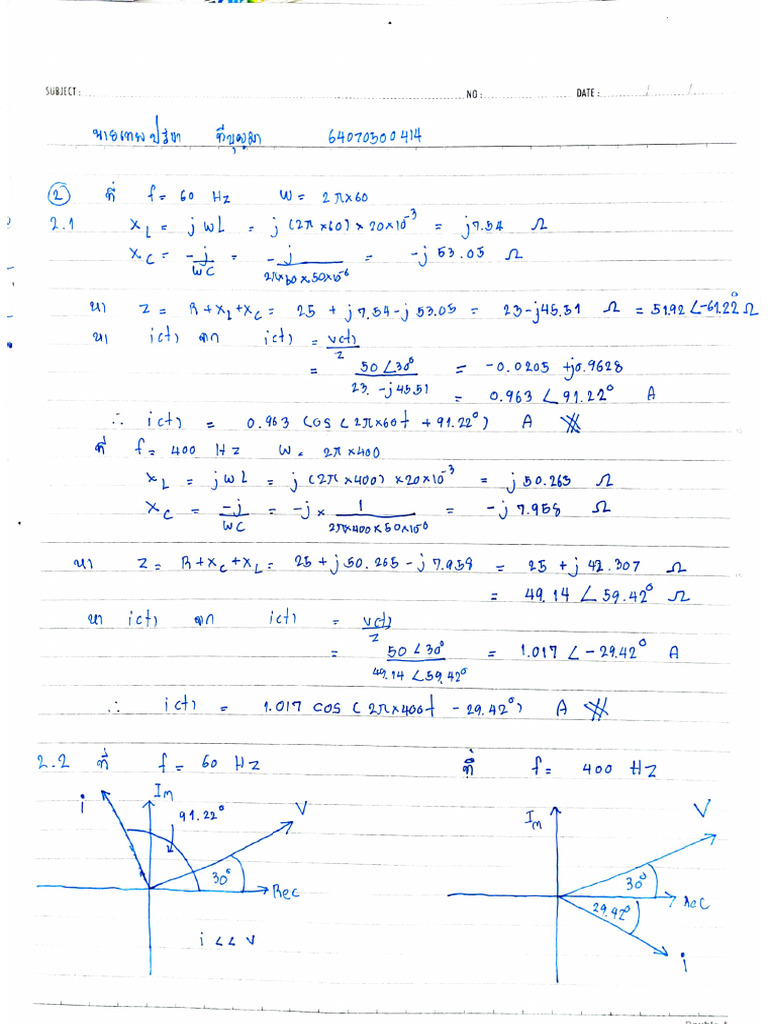 SUBJECT: NO: DATE: / /
64070500414
② ที่ f = 60 Hz W = 2π×60
2.1 X_L = jWL = j(2π×60)×20×10⁻³ = j7.54 Ω
X_C = -j/WC = -j/2π×60×50×10⁻⁶ = -j53.05 Ω
หา Z = R+X_L+X_C = 25 + j7.54 - j53.05 = 23-j45.51 Ω = 51.92∠-61.22° Ω
หา i(t) จาก i(t) = v(t)/Z
= 50∠30°/23.-j45.51 = -0.0205 + j0.9628
= 0.963 ∠ 91.22° A
∴ i(t) = 0.963 cos(2π×60t + 91.22°) A
ที่ f = 400 Hz W = 2π×400
X_L = jWL = j(2π×400)×20×10⁻³ = j50.263 Ω
X_C = -j/WC = -j × 1/2π×400×50×10⁻⁶ = -j7.958 Ω
หา Z = R+X_C+X_L = 25 + j50.265 - j7.958 = 25 + j42.307 Ω
= 49.14 ∠ 59.42° Ω
หา i(t) จาก i(t) = v(t)/Z
= 50∠30°/49.14∠59.42° = 1.017 ∠ -29.42° A
∴ i(t) = 1.017 cos(2π×400t - 29.42°) A
2.2 ที่ f = 60 Hz ที่ f = 400 Hz
i Im 91.22° V
30° Rec
i << V
Im V
30° Rec
29.42°
i